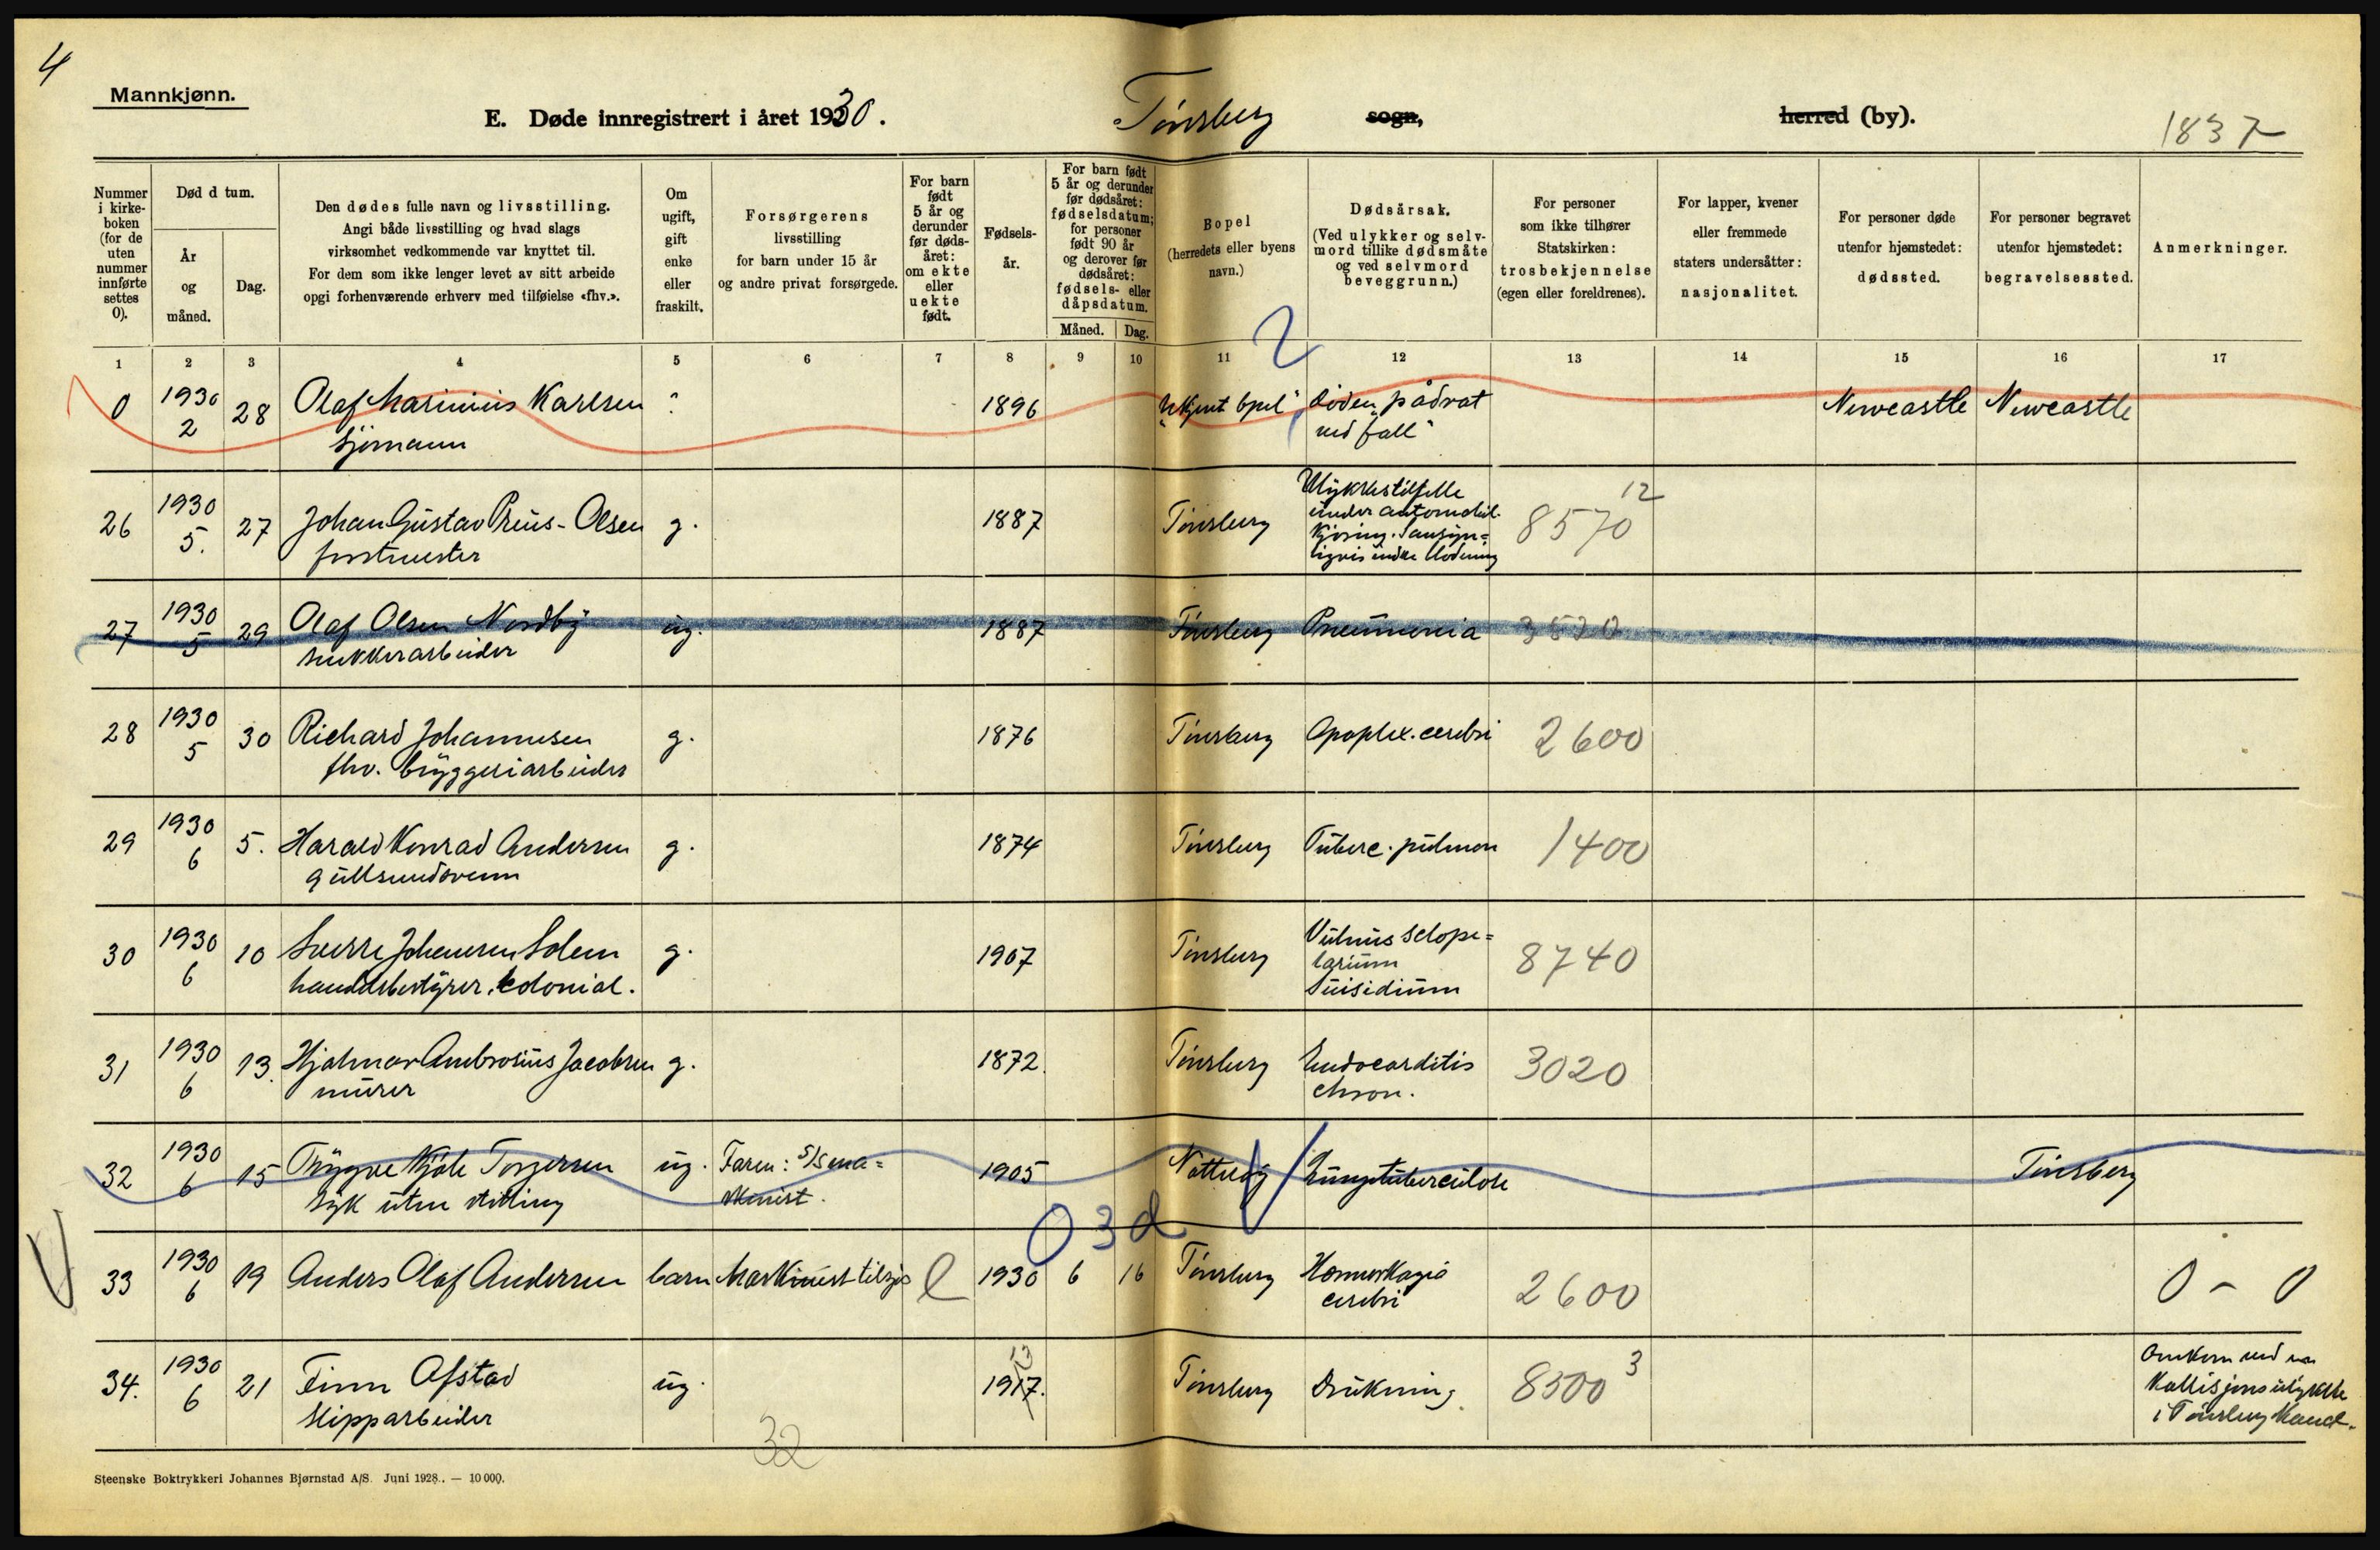 4
Mannkjønn.
E. Døde innregistrert i året 1930.
Tönsberg
sogn,
herred (by).
1837
Nummer i kirke-boken (for de uten nummer innførte settes 0).
Død d tum.
År og måned.
Dag.
Den dødes fulle navn og livsstilling.
Angi både livsstilling og hvad slags
virksomhet vedkommende var knyttet til.
For dem som ikke lenger levet av sitt arbeide
opgi forhenværende erhverv med tilføielse «fhv.».
Om ugift, gift enke eller fraskilt.
Forsørgerens
livsstilling
for barn under 15 år
og andre privat forsørgede.
For barn født 5 år og derunder før døds-året: om ekte eller uekte født.
Fødsels-år.
For barn født 5 år og derunder før dødsåret: fødselsdatum; for personer født 90 år og derover før dødsåret: fødsels- eller dåpsdatum.
Måned.
Dag.
Bopel
(herredets eller byens
navn.)
Dødsårsak.
(Ved ulykker og selv-
mord tillike dødsmåte
og ved selvmord
beveggrunn.)
For personer
som ikke tilhører
Statskirken:
trosbekjennelse
(egen eller foreldrenes).
For lapper, kvener
eller fremmede
staters undersåtter:
nasjonalitet.
For personer døde
utenfor hjemstedet:
dødssted.
For personer begravet
utenfor hjemstedet:
begravelsessted.
Anmerkninger.
1 2 3 4 5 6 7 8 9 10 11 12 13 14 15 16 17
2
0 1930 2 28 Olaf Marinius Karlsen ? 1896 "Ukjent bpel" Döden "pådrat Newcastle Newcastle
sjömann ved fall"
26 1930 5. 27 Johan Gustav Preüs-Olsen g. 1887 Tönsberg Ulykkestilfelle 8570 12
forstmester under automobil-
kjöring. Sansyn=
ligvis indre blödning
27 1930 5 29 Olaf Olsen Nordby ug. 1887 Tönsberg Pneumonia 3520
sukkerarbeider
28 1930 5 30 Richard Johannesen g. 1876 Tönsberg Apoplex. cerebri 2600
fhv. bryggeriarbeider
29 1930 6 5. Harald Konrad Andersen g. 1874 Tönsberg Tuberc. pulmon 1400
gullsmedsvenn
30 1930 6 10 Sverre Johansen Solem g. 1907 Tönsberg Vulnus sclope= 8740
handelsbestyrer, kolonial. tarium
Suisidium
31 1930 6 13. Hjalmar Ambrosius Jacobsen g. 1872. Tönsberg Endocarditis 3020
murer chron.
32 1930 6 15 Trygve Kjöle Torgersen ug. Faren: S/S ma= 1905 Nötteröy Lungetuberculose Tönsberg
syk uten stilling skinist.
0 3 d
33 1930 6 19 Anders Olaf Andersen barn Maskinist tilsjös e 1930 6 16 Tönsberg Hæmorrhagia 2600 0 - 0
cerebri
34. 1930 6 21 Finn Afstad ug. 1917. 13 Tönsberg Drukning. 8500 3 Omkom ved en
skipparbeider kollisjonsulykke
i Tönsberg kanal.
32
Steenske Boktrykkeri Johannes Bjørnstad A/S. Juni 1928. — 10 000.